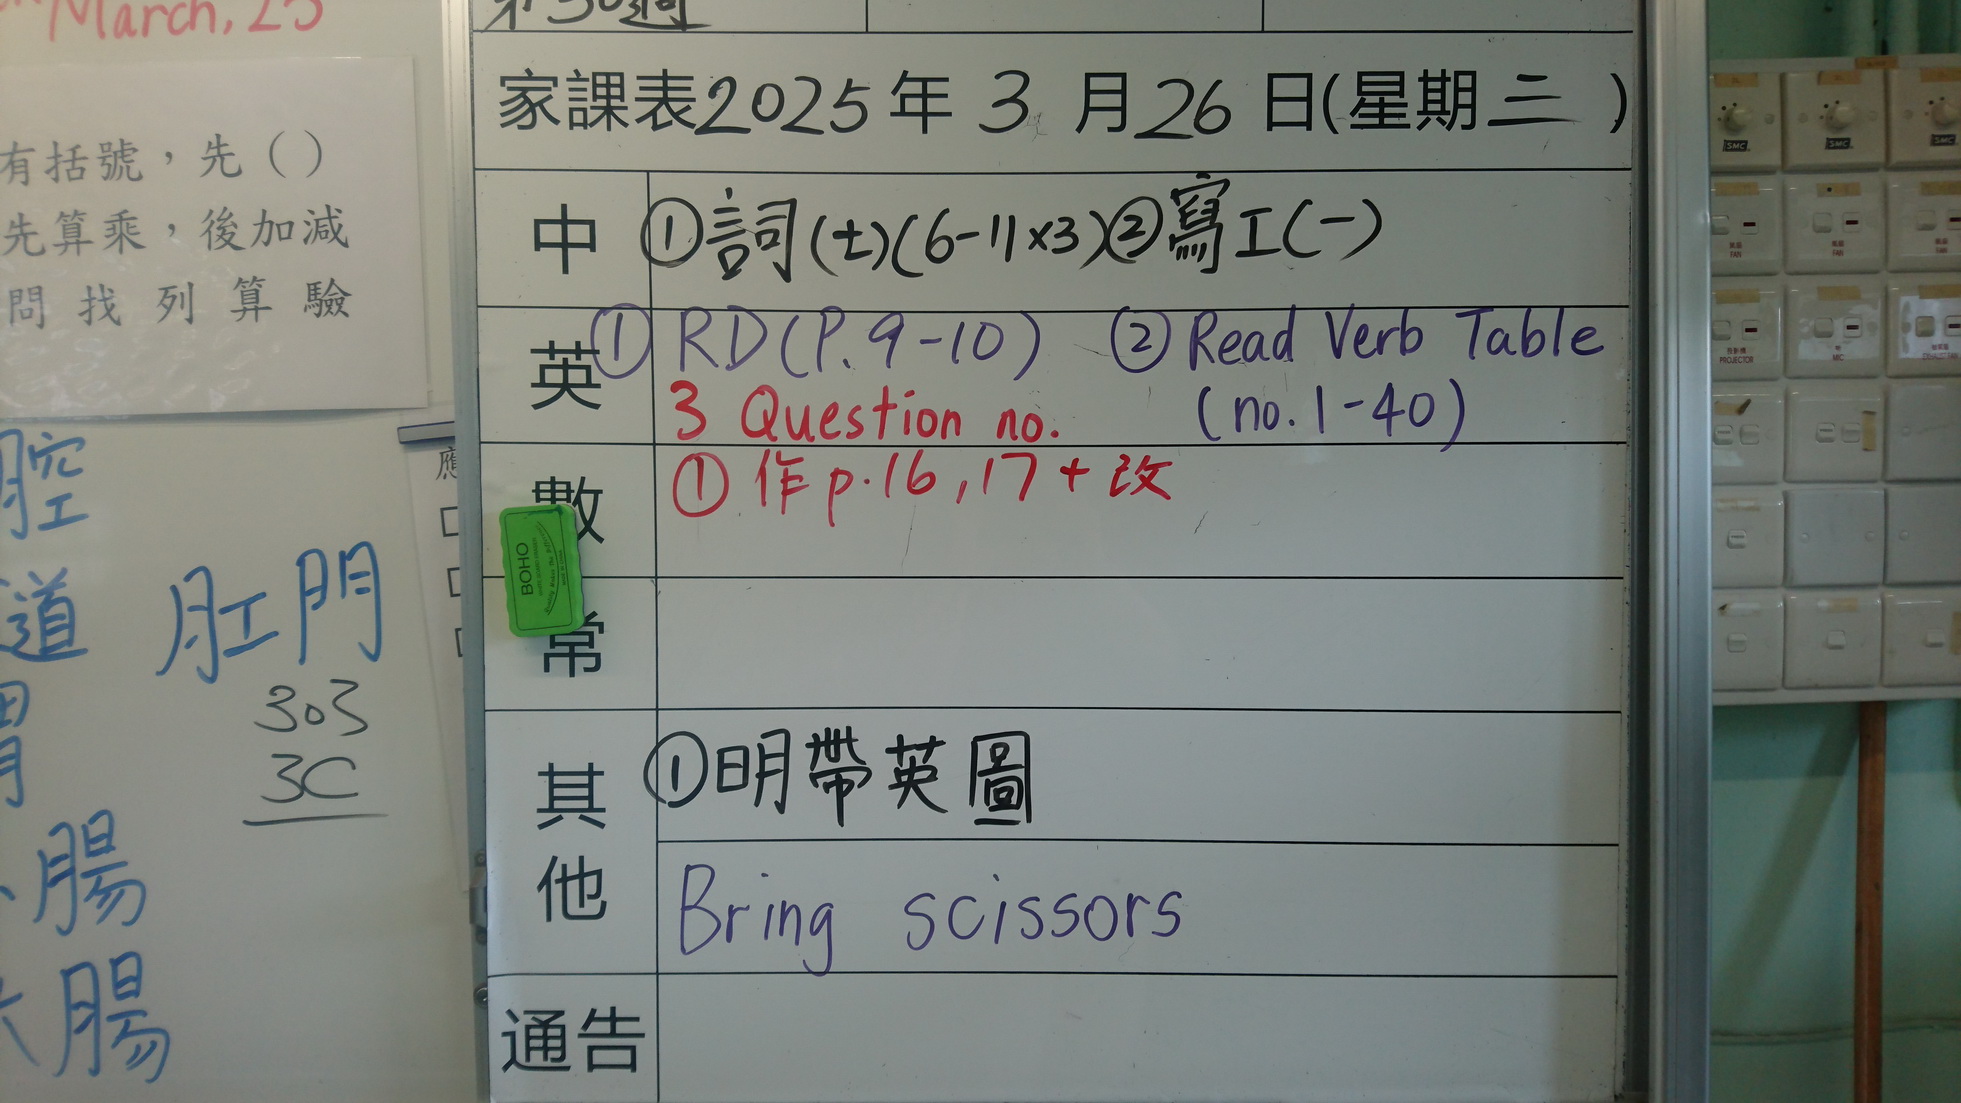 March, 25
有括號，先（）
先算乘，後加減
問找列算驗
腔
道 肛門
胃
303
3C
腸
腸
應
第30週
家課表2025年3月26日(星期三)
中 ①詞(士)(6-11x3)②寫工(一)
英 ① RD(P.9-10) ② Read Verb Table
3 Question no. (no.1-40)
數 ① 作p.16,17+改
BOHO
常
其他 ①明帶英圖
Bring scissors
通告
SMC
SMC
SMC
風扇
FAN
風扇
FAN
投影機
PROJECTOR
MIC